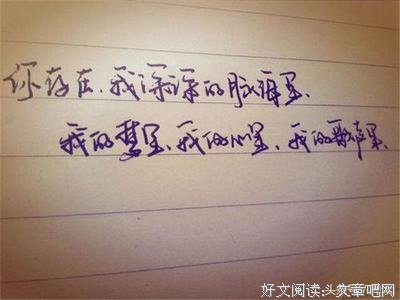 你存在、我深深的脑海里、
我的梦里、我的心里、我的歌声里、
好文阅读:头条文章吧网